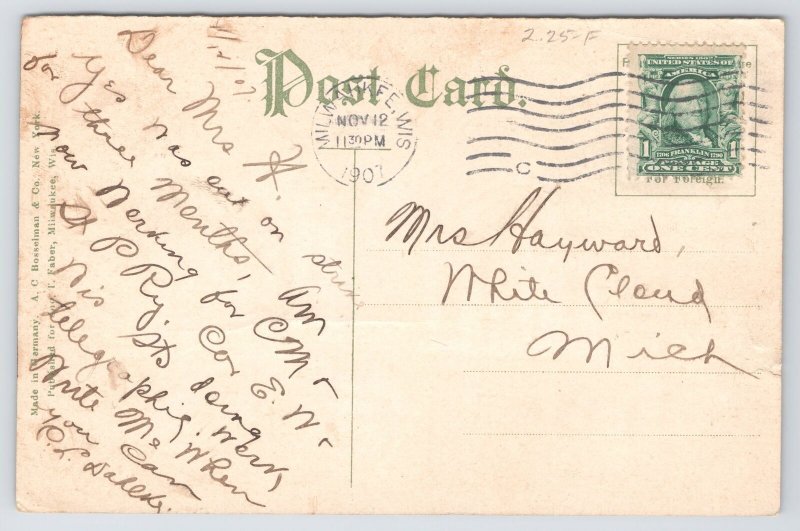 2.25-F
Post Card.
MILWAUKEE, WIS
NOV 12
11 30 PM
1907
C
SERIES 1902
UNITED STATES OF
AMERICA
1706 FRANKLIN 1790
POSTAGE
1 ONE CENT 1
For Foreign.
11/12/07
Dear Mrs H.
Yes was out on strike
for three Months, am
now Working for C M &
St P Ry, Co E. W.
Wis its doing
telegraphic work,
Write Me When
you can
Mrs Hayward,
White Cloud
Mich
Made in Germany. A. C. Bosselman & Co. New York.
Published for E. Faber, Milwaukee, Wis.